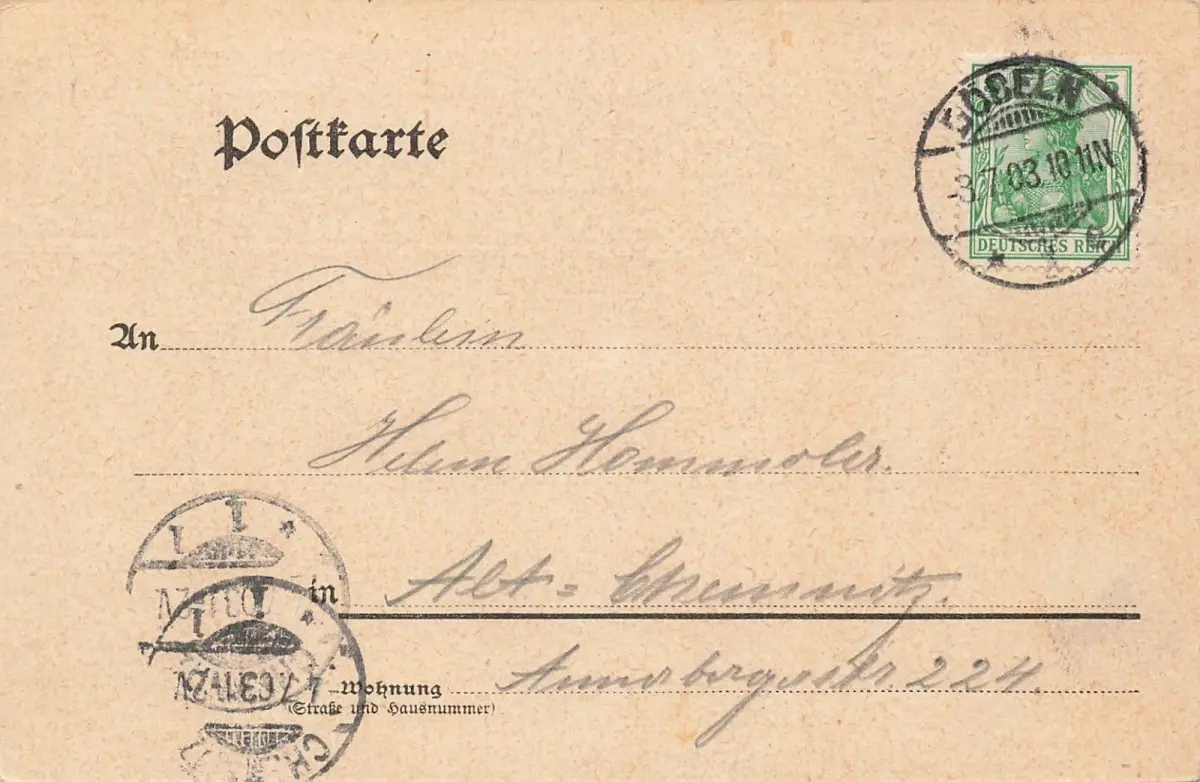 Postkarte
5
DÖBELN
-3.7.03.10-11N.
* 1 c
DEUTSCHES REICH
An Fräulein
Helene Hommoler.
in Alt=Chemnitz.
4.7.03.11-12V
Wohnung Annabergerstr 224.
(Straße und Hausnummer)